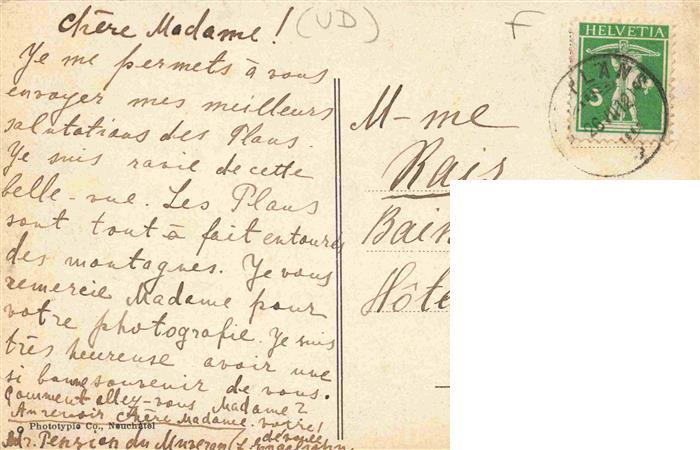 Chère Madame! (VD) F
Je me permets à vous
envoyer mes meilleurs
salutations des Plans.
Je suis ravie de cette
belle-vue. Les Plans
sont tout-à fait entourés
des montagnes. Je vous
remercie Madame pour
votre photografie. Je suis
très heureuse avoir une
si bonne souvenir de vous.
Comment allez-vous Madame?
Aurevoir chère Madame. votre!
dévouée
9 Phototypie Co., Neuchâtel
Adr. Pension du Muveran
HELVETIA
5
PLANS
M-me
Rais
Bain
Hôte